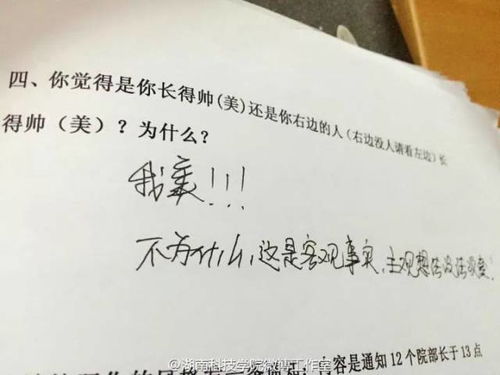 四、你觉得是你长得帅(美)还是你右边的人(右边没人请看左边)长
得帅(美)?为什么?
我美!!!
不为什么,这是客观事实,主观想法没法改变!
容是通知12个院部长于13点
@湖南科技学院微博工作室